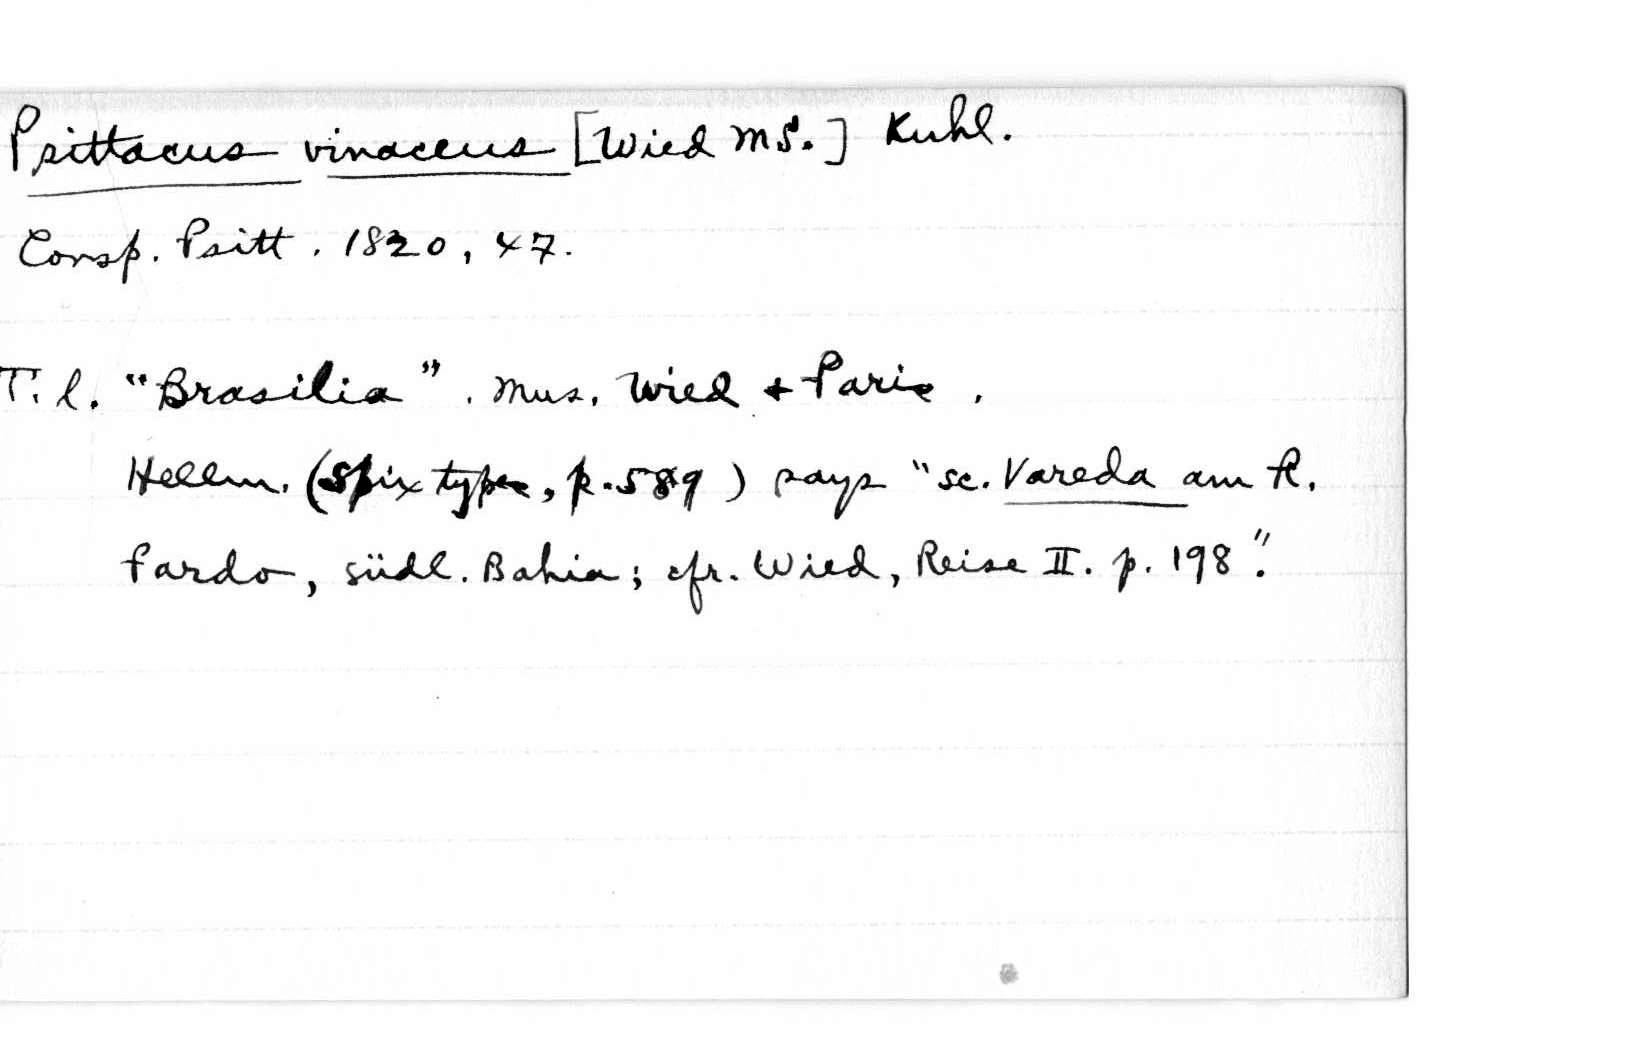 Psittacus vinaceus [Wied MS.] Kuhl.
Consp. Psitt. 1820, 47.
T. l. "Brasilia". Mus. Wied + Paris.
Hellm. (Spix types, p. 589) says "sc. Vareda am R.
Pardo, südl. Bahia; cfr. Wied, Reise II. p. 198".